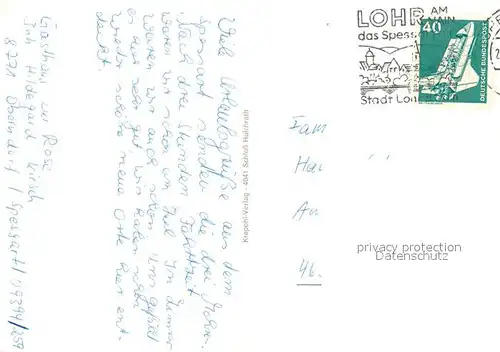 Gasthaus zur Rose
Inh. Hildegard Hirsch
8771 Oberndorf / Spessart / 09394/257
Viele Urlaubsgrüße aus dem
Spessart senden die drei
Nach drei Stunden Fahrtzeit
waren wir schon am Ziel. Im
waren wir auch schon Uns gefällt
es sehr gut wir haben schon
wieder schöne neue Orte hier ent-
deckt.
Krapohl-Verlag - 4041 Schloß Hülchrath
LOHR AM MAIN
das Spess
Stadt Loh
40
DEUTSCHE BUNDESPOST
Fam
An
46.
privacy protection
Datenschutz